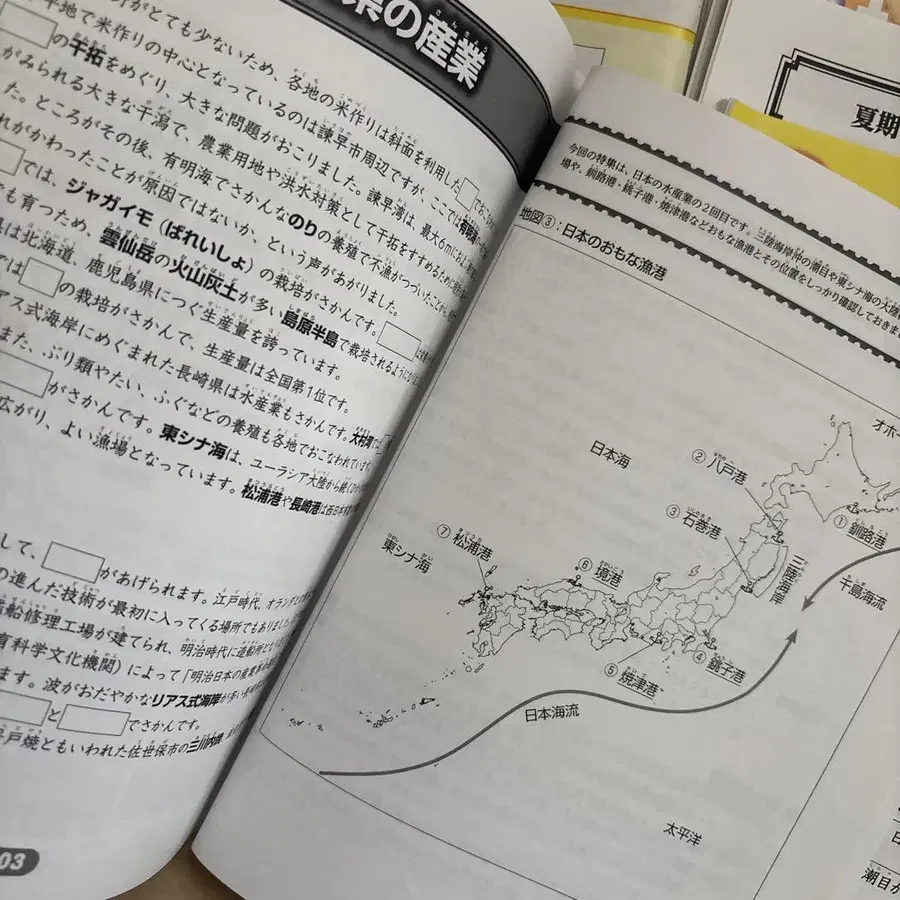 県の産業
がとても少ないため、各地の米作りは斜面を利用した
平地で米作りの中心となっているのは諫早市周辺ですが、ここでは有明海
の干拓をめぐり、大きな問題がおこりました。諫早湾は、最大6m
がみられる大きな干潟で、農業用地や洪水対策として干拓をすすめるために
た。ところがその後、有明海でさかんなのりの養殖で不漁がつづいた
れがかわったことが原因ではないか、という声があがりました。
では、ジャガイモ(ばれいしょ)の栽培がさかんです。
も育つため、雲仙岳の火山灰土が多い島原半島で栽培されるように
は北海道、鹿児島県につぐ生産量を誇っています。
では の栽培がさかんで、生産量は全国第1位です。
アス式海岸にめぐまれた長崎県は水産業もさかんです。大村湾では
また、ぶり類やたい、ふぐなどの養殖も各地でおこなわれています。
がさかんです。東シナ海は、ユーラシア大陸から続く
広がり、よい漁場となっています。松浦港や長崎港は西日本
して、 があげられます。江戸時代、オランダ
の進んだ技術が最初に入ってくる場所でもありました。
船修理工場が建てられ、明治時代に造船所と
育科学文化機関)によって「明治日本の産業革命
ます。波がおだやかなリアス式海岸が
と でさかんです。
平戸焼ともいわれた佐世保市の三川内焼
03
夏期
今回の特集は、日本の水産業の2回目です。三陸海岸沖の潮目や東シナ海の大陸
場や、釧路港・銚子港・焼津港などおもな漁港とその位置をしっかり確認しておきま
地図③:日本のおもな漁港
オホー
日本海
②八戸港
③石巻港
①釧路港
⑦松浦港
東シナ海
⑥境港
三陸海岸
千島海流
④銚子港
⑤焼津港
日本海流
太平洋
潮目が